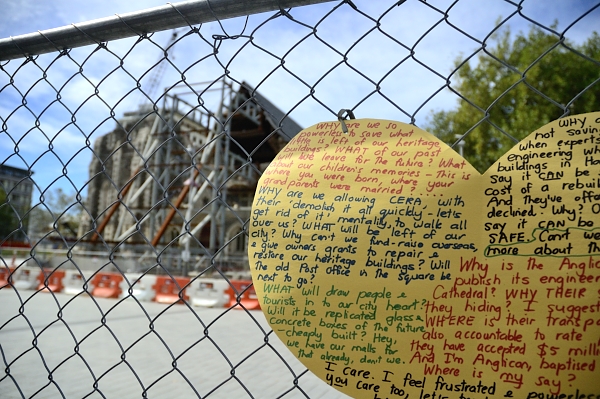 WHY are we so
powerless to save what
little is left of our heritage
buildings? WHAT of our past
will we leave for the future? What
of our children's memories: This is
where you were born, where your
grand parents were married?....
WHY are we allowing CERA, with
their demolish it all quickly - let's
get rid of it mentality, to walk all
over us? WHAT will be left of our
city? Why can't we fund-raise overseas,
& give owners grants to repair &
restore our heritage buildings? Will
the old Post office in the Square be
next to go?
WHAT will draw people &
tourists in to our city heart?
Will it be replicated glass &
concrete boxes of the future
- cheaply built? Hey,
we have our malls for
that already, don't we.
I care. I feel frustrated & powerless
you care too, let's
WHY
not saving
when experts
engineering wh
buildings in
say it CAN be
cost of a rebuil
And they've offe
declined. Why?
say it CAN be
SAFE. Can't we
more about th
Why is the Anglic
publish its engineer
Cathedral? WHY THEIR
they hiding? I suggest
WHERE is their transpa
also, accountable to rate
they have accepted $5 milli
And I'm Anglican, baptised
Where is my say?